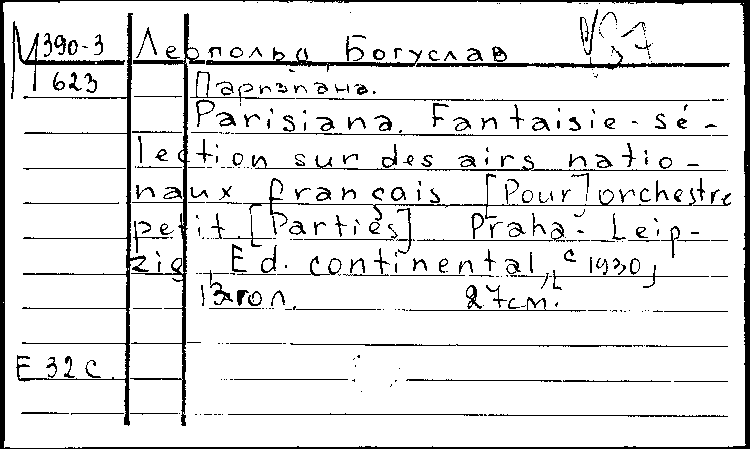 М 390-3 Леопольд, Богуслав
623 Паризиана.
Parisiana. Fantaisie-sé-
lection sur des airs natio-
naux français [Pour] orchestre
petit. [Parties] Praha-Leip-
zig, Ed. continental, [c 1930]
27 cm.
E 32 c.